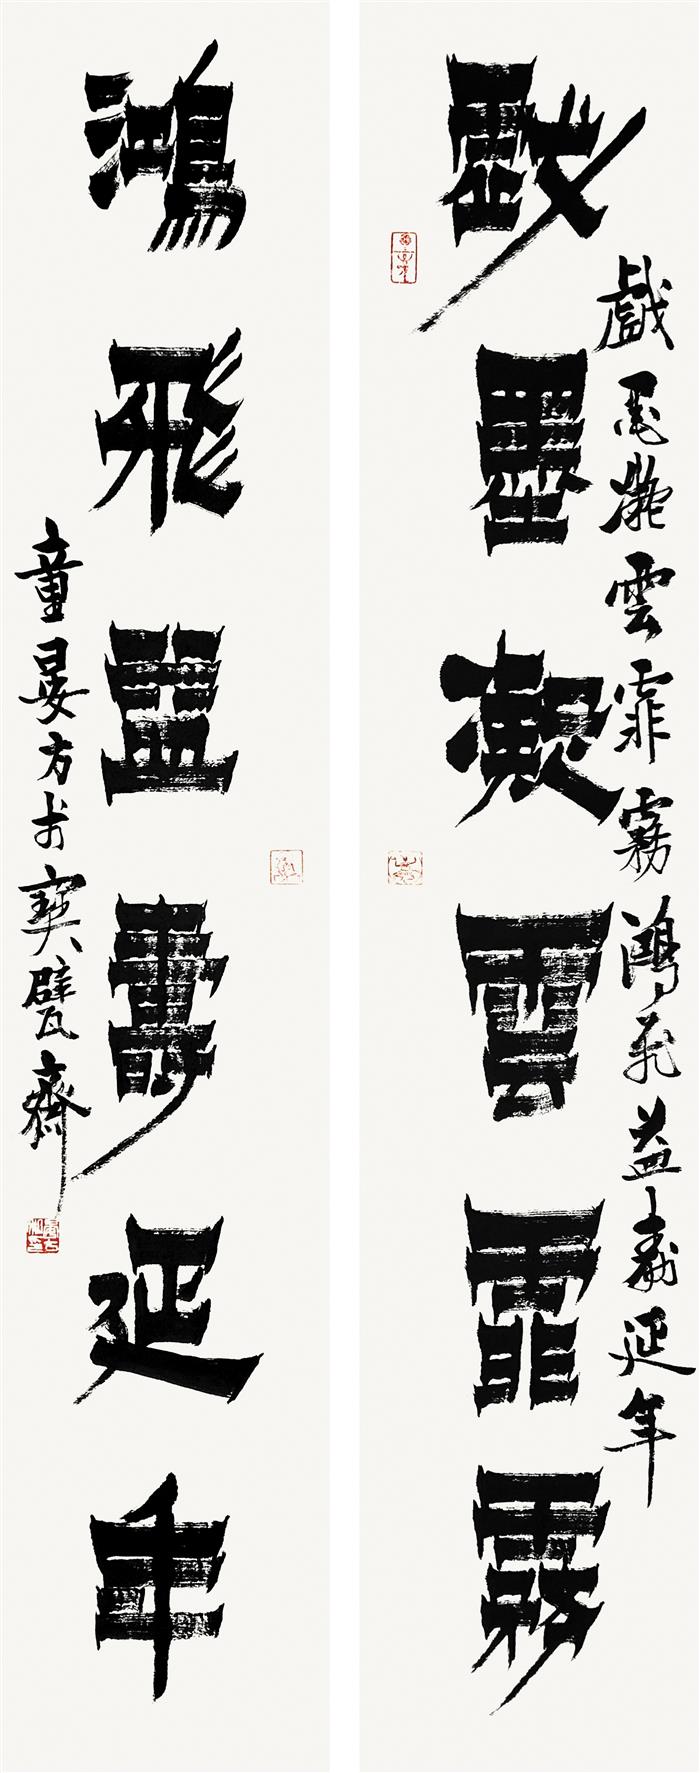 戲墨凝雲霏霧
戲墨凝雲霏霧鴻飛益壽延年
鴻飛益壽延年
童晏方寶甓齋